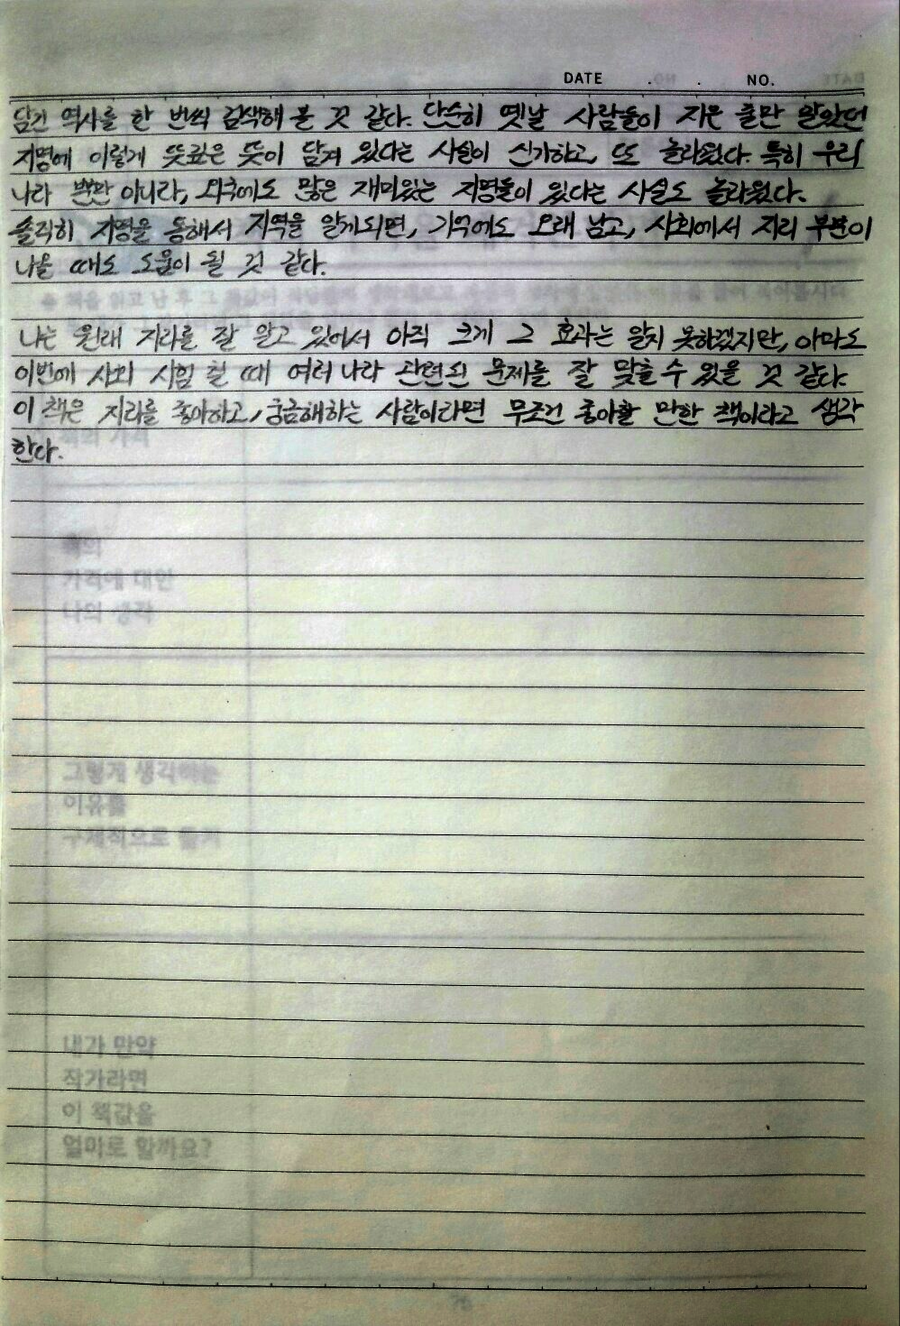 DATE . . NO.
담긴 역사를 한 번씩 검색해 볼 것 같다. 단순히 옛날 사람들이 지은 줄만 알았던
지명에 이렇게 뜻깊은 뜻이 담겨 있다는 사실이 신기하고, 또 놀라웠다. 특히 우리
나라 뿐만 아니라, 외국에도 많은 재미있는 지명들이 있다는 사실도 놀라웠다.
솔직히 지명을 통해서 지역을 알게되면, 기억에도 오래 남고, 사회에서 지리 부분이
나올 때도 도움이 될 것 같다.
나는 원래 지리를 잘 알고 있어서 아직 크게 그 효과는 알지 못하겠지만, 아마도
이번에 사회 시험 칠 때 여러 나라 관련된 문제를 잘 맞출 수 있을 것 같다.
이 책은 지리를 좋아하고, 궁금해하는 사람이라면 무조건 좋아할 만한 책이라고 생각
한다.
책의 가격
책의
가격에 대한
나의 생각
그렇게 생각하는
이유를
구체적으로 쓰기
내가 만약
작가라면
이 책값을
얼마로 할까요?